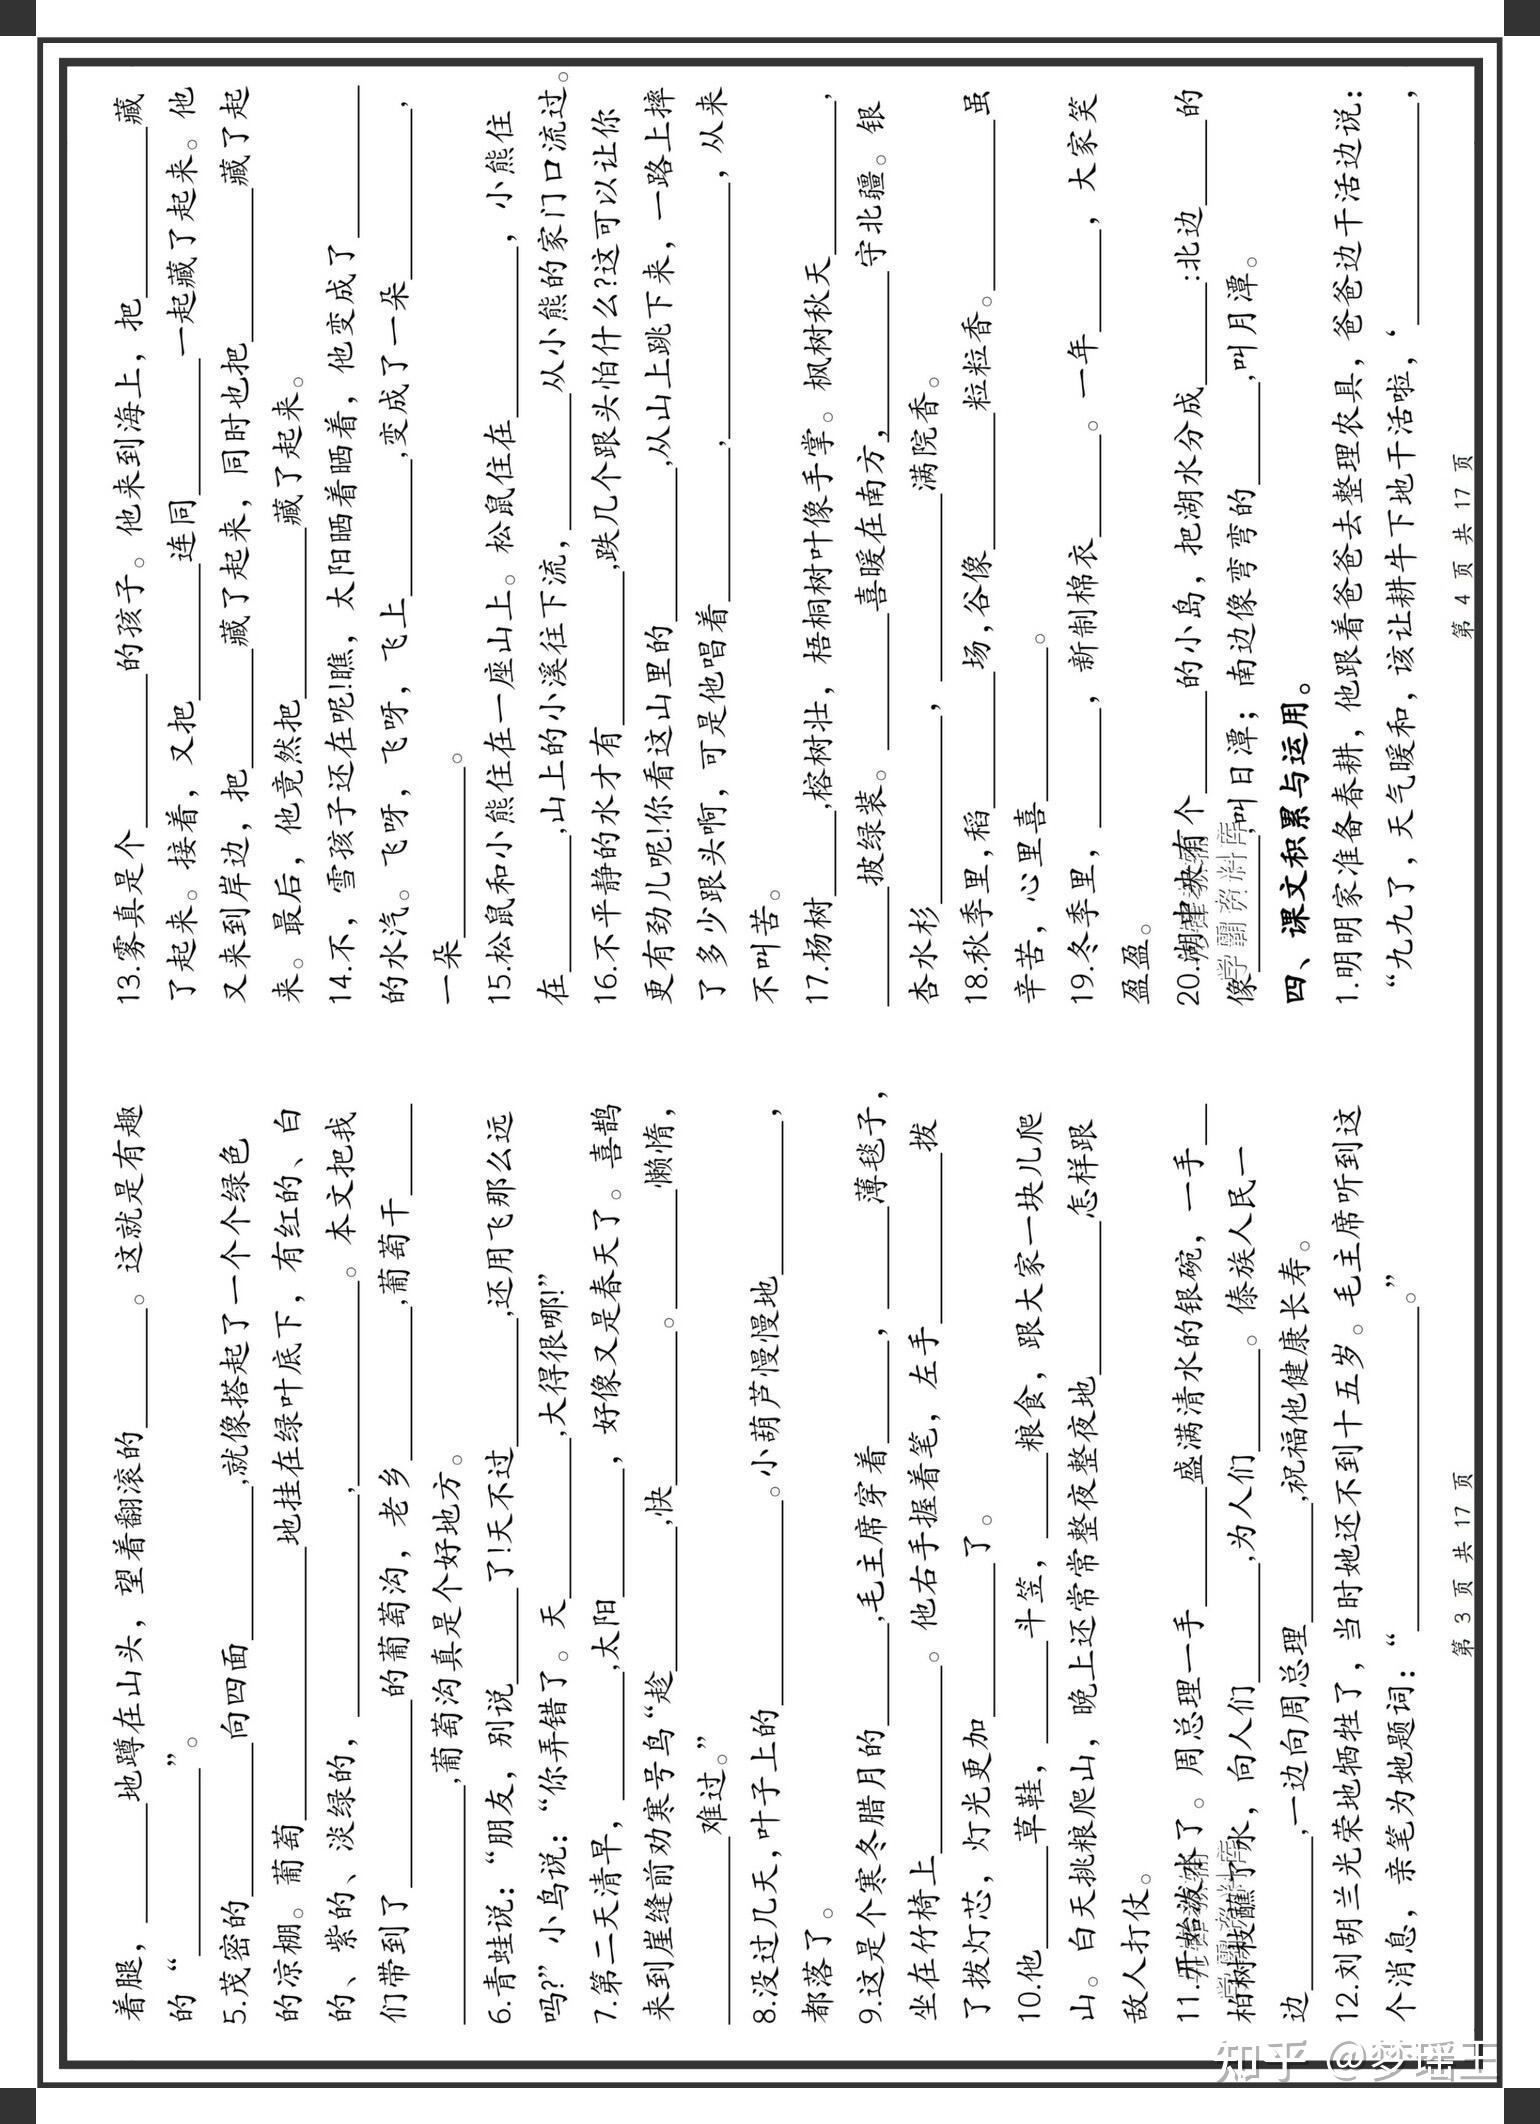 着腿，____地蹲在山头，望着翻滚的____。这就是有趣
的“____”。
5.茂密的____向四面____,就像搭起了一个个绿色
的凉棚。葡萄____地挂在绿叶底下，有红的、白
的、紫的、淡绿的，____,____。本文把我
们带到了____的葡萄沟，老乡____,葡萄干____
____,葡萄沟真是个好地方。
6.青蛙说：“朋友，别说____了!天不过____,还用飞那么远
吗?”小鸟说：“你弄错了。天____,大得很哪!”
7.第二天清早，____,太阳____，好像又是春天了。喜鹊
来到崖缝前劝寒号鸟“趁____,快____。____懒惰，
____难过。”
8.没过几天,叶子上的____。小葫芦慢慢地____，
都落了。
9.这是个寒冬腊月的____,毛主席穿着____，____薄毯子，
坐在竹椅上____。他右手握着笔，左手____拨
了拨灯芯，灯光更加____了。
10.他____草鞋，____斗笠，____粮食，跟大家一块儿爬
山。白天挑粮爬山，晚上还常常整夜整夜地____怎样跟
敌人打仗。
11.开始泼水了。周总理一手____盛满清水的银碗，一手____
柏树枝蘸了水，向人们____,为人们____。傣族人民一
边____,一边向周总理____,祝福他健康长寿。
12.刘胡兰光荣地牺牲了，当时她还不到十五岁。毛主席听到这
个消息，亲笔为她题词：“____。”
第 3 页 共 17 页
13.雾真是个____的孩子。他来到海上，把____藏
了起来。接着，又把____连同____一起藏了起来。他
又来到岸边，把____藏了起来，同时也把____藏了起
来。最后，他竟然把____藏了起来。
14.不，雪孩子还在呢!瞧，太阳晒着晒着，他变成了____
的水汽。飞呀，飞呀，飞上____,变成了一朵____，
一朵____。
15.松鼠和小熊住在一座山上。松鼠住在____，小熊住
在____,山上的小溪往下流，____从小熊的家门口流过。
16.不平静的水才有____,跌几个跟头怕什么?这可以让你
更有劲儿呢!你看这山里的____,从山上跳下来，一路上摔
了多少跟头啊，可是他唱着____,____，从来
不叫苦。
17.杨树____,榕树壮，梧桐树叶像手掌。枫树秋天____，
____披绿装。____喜暖在南方，____守北疆。银
杏水杉____，____满院香。
18.秋季里,稻____场,谷像____粒粒香。____虽
辛苦，心里喜____。
19.冬季里，____，新制棉衣____。一年____，大家笑
盈盈。
20.湖中央有个____的小岛，把湖水分成____:北边____的
像____,叫日潭；南边像弯弯的____,叫月潭。
四、课文积累与运用。
1.明明家准备春耕，他跟着爸爸去整理农具，爸爸边干活边说：
“九九了，天气暖和，该让耕牛下地干活啦，‘____，
第 4 页 共 17 页
知乎 @梦瑶王